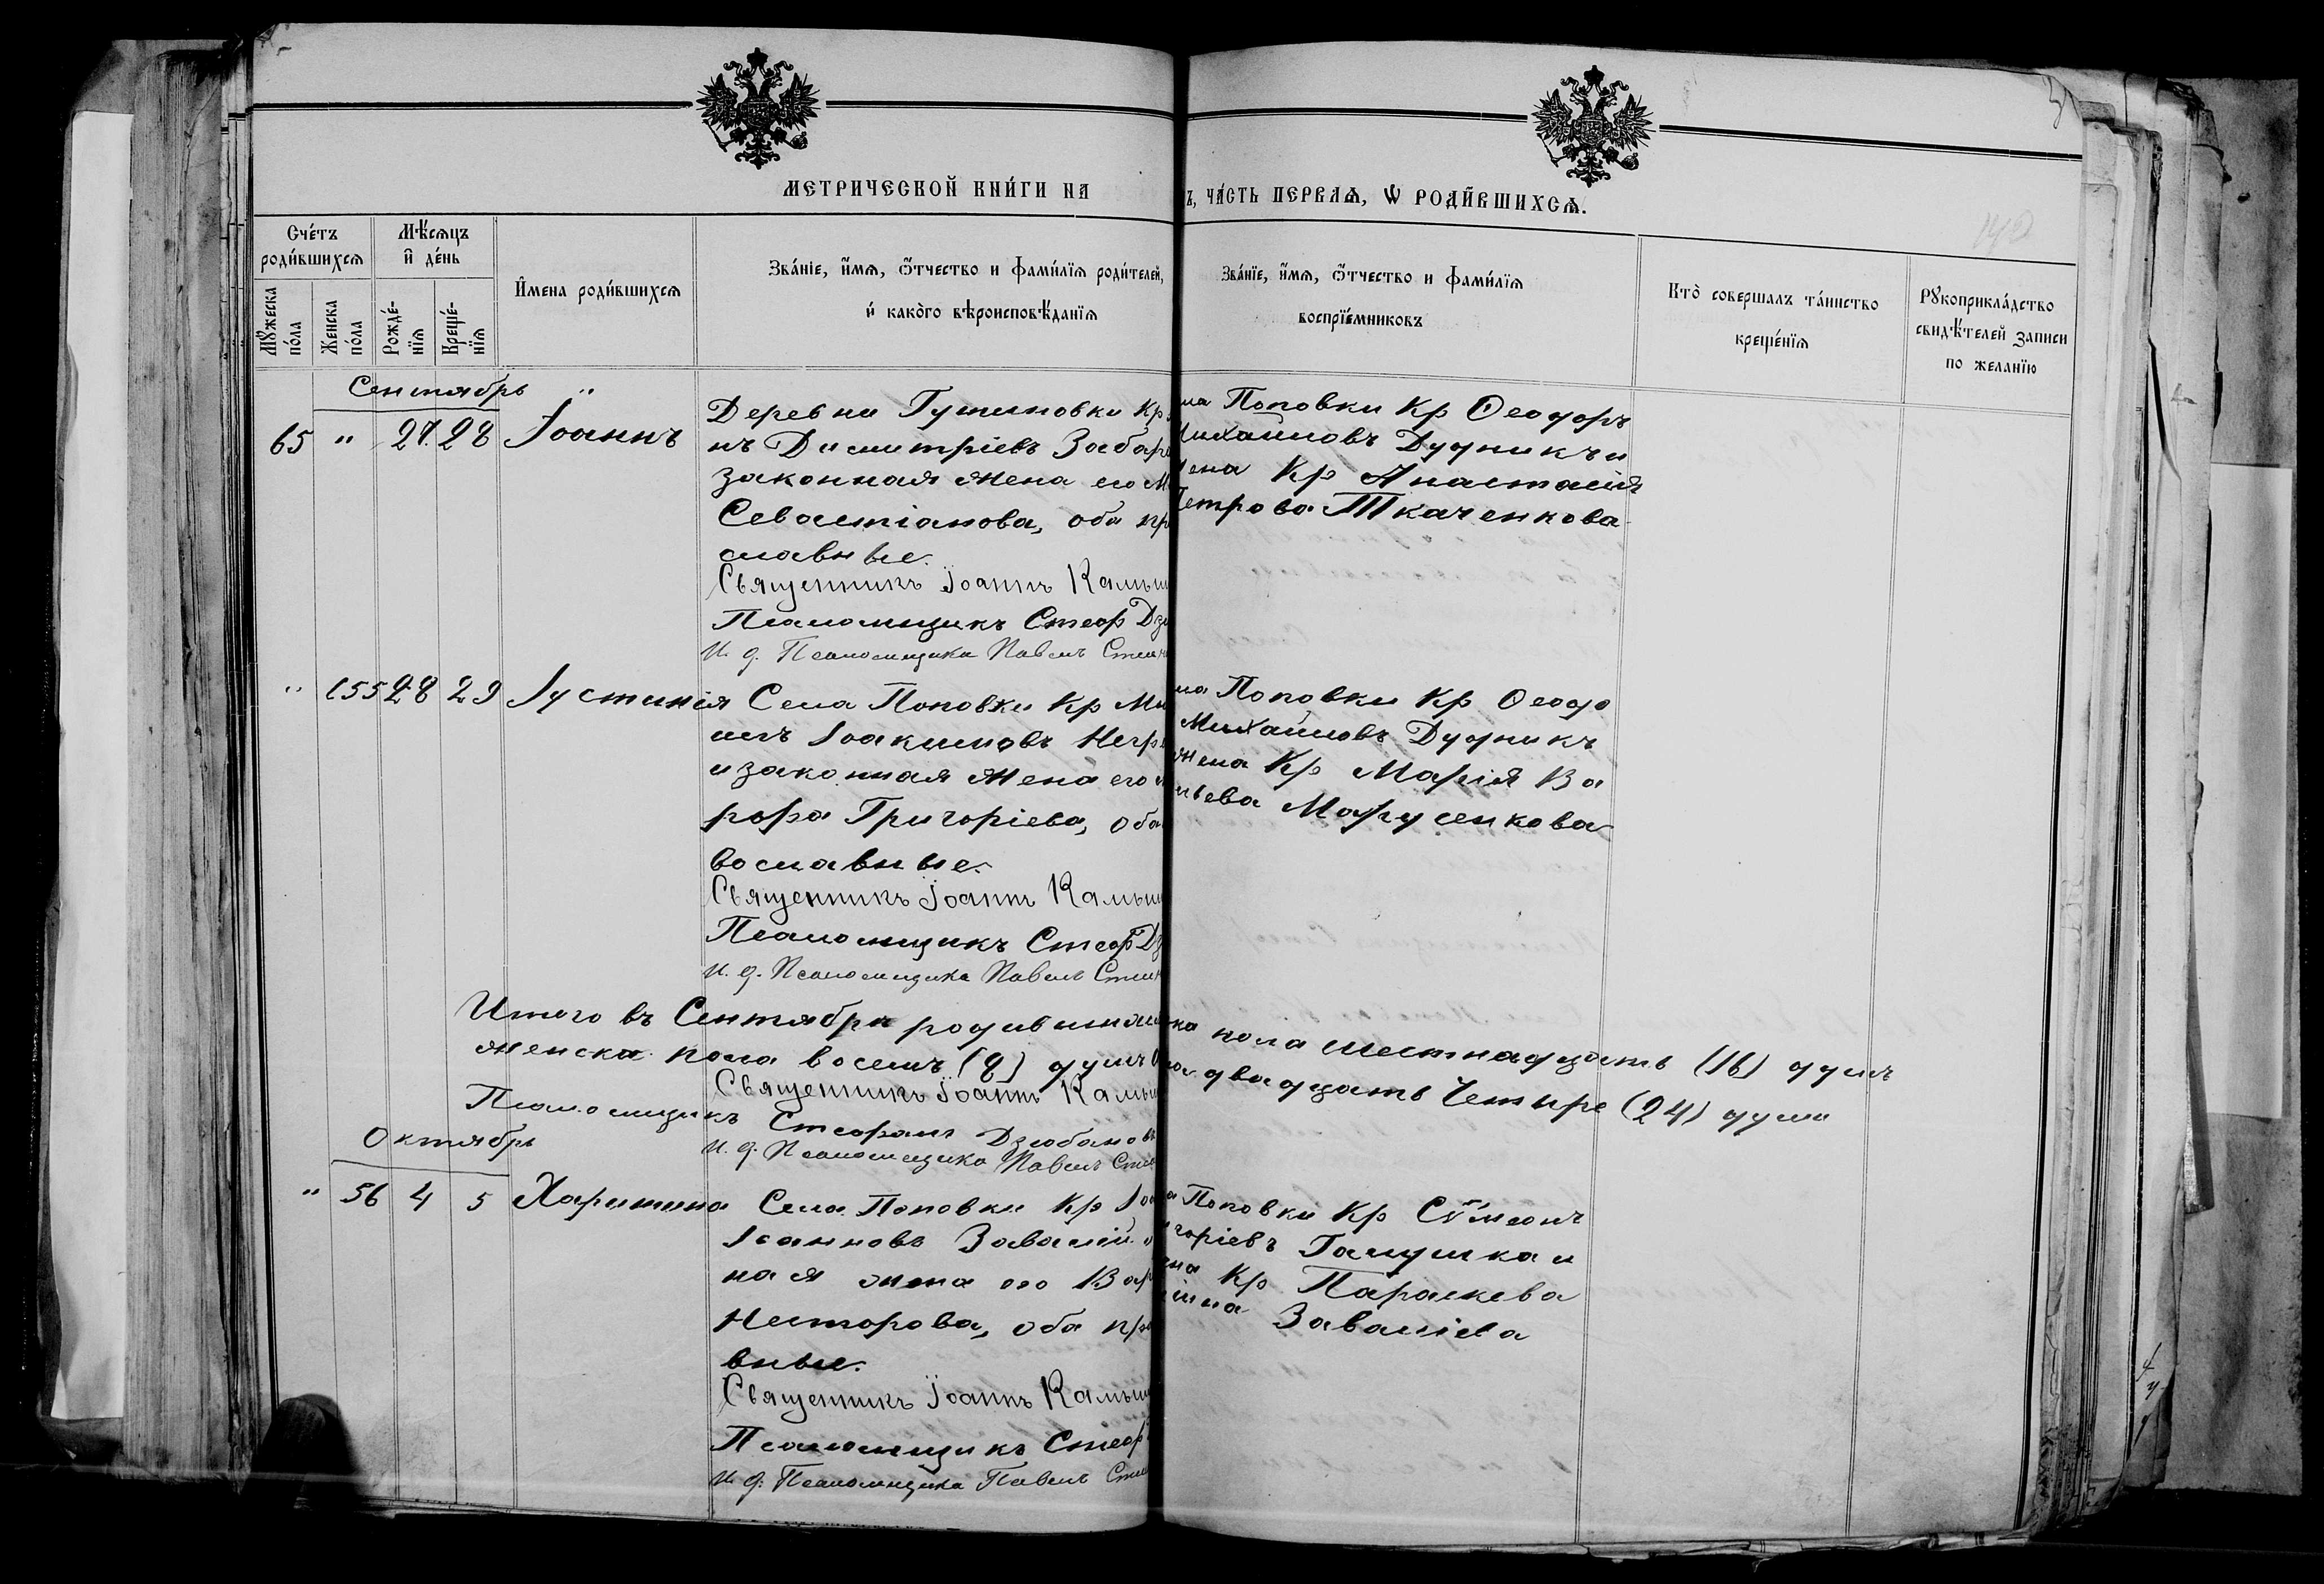 МЕТРИЧЕСКОЙ КНИ́ГИ НА
Ъ, ЧА́СТЬ ПЕРВАѦ, Ѡ РОДИ́ВШИХСѦ.
Сче́тъ роди́вшихсѧ
Мѣ́сѧцъ и де́нь
Мꙋжеска по́ла
Женска по́ла
Рожде́-нїѧ
Креще́-нїѧ
И҆мена роди́вшихсѧ
Зва́нїе, и҆́мѧ, ѻ҆́тчество и фами́лїѧ роди́телей,
и какого вѣроисповѣ́данїѧ
Зва́нїе, и҆́мѧ, ѻ҆́тчество и фами́лїѧ
воспрїе́мниковъ
Кто̀ совершалъ та́инство
креще́нїѧ
Рꙋкоприкла́дство
свидѣ́телей записи
по желанїю
Сентябрь
65 " 27. 28 Іоаннъ
Деревни Гутиновки Кр
нъ Димитріевъ Забаре
законная жена его М
Севастіанова, оба пр
славные.
Священникъ Іоаннъ Камыш
Псаломщикъ Стеф Дзю
И. д. Псаломщика Павелъ
ла Поповки Кр Ѳеодоръ
Михаиловъ Дудникъ и
Кр Анастасія
Петрова Ткаченкова
" 155 28 29 Іустинія
Села Поповки Кр Ми
илъ Іоакимовъ Негр
и законная жена его
Григоріева, оба
вославные.
Священникъ Іоаннъ Камыш
Псаломщикъ Стеф Дз
И. д. Псаломщика Павелъ
ла Поповки Кр Ѳеодо
Михаиловъ Дудникъ
жена Кр Марія Ва
ильева Марусенкова
Итого въ Сентябрѣ родившихся
ка пола шестнадцать (16) душъ
женска пола восемь (8) душъ
двадцать четыре (24) души
Священникъ Іоаннъ Камыш
Псаломщикъ Стефанъ Дзюбановъ
И. д. Псаломщика Павелъ
Октябрь
" 56 4 5 Харитина
Села Поповки Кр Іоа
Іоанновъ Завалій
ная жена его Вар
Несторова, оба пра
вные.
Священникъ Іоаннъ Камыш
Псаломщикъ Стеф
И. д. Псаломщика Павелъ
Поповки Кр Сѵмеонъ
горіевъ Галушка и
Кр Параскева
Заваліева